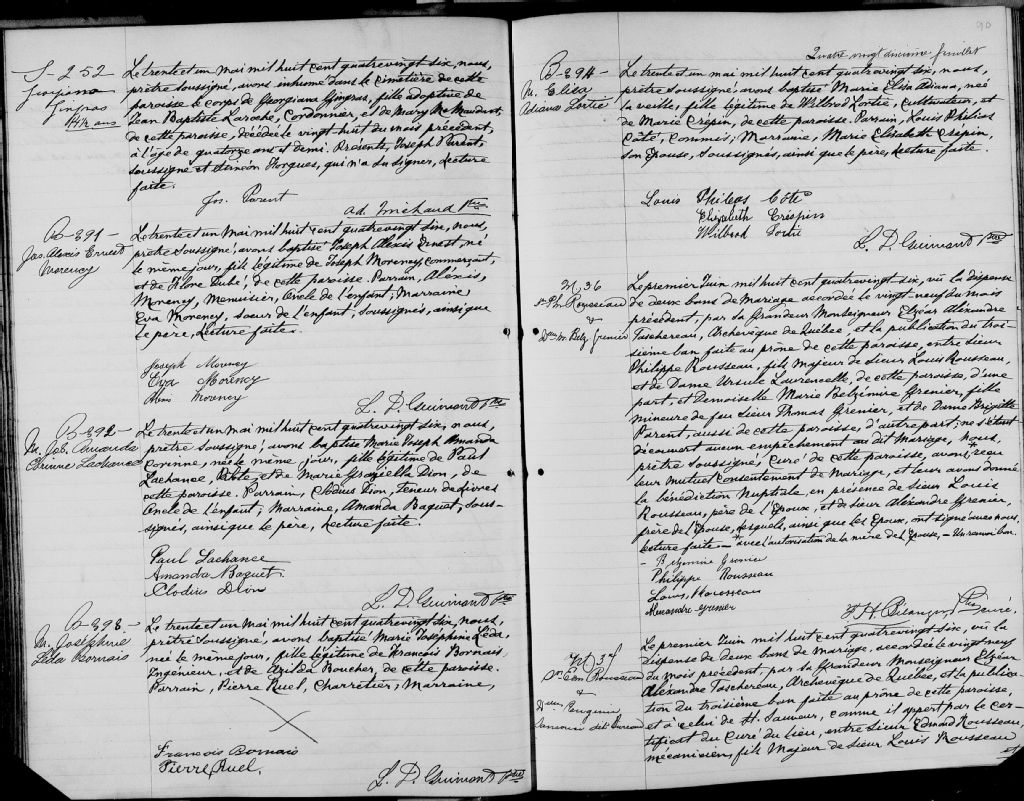 S-252
Georgiana
Gingras
14½ ans
Le trente et un mai mil huit cent quatrevingt six, nous,
prêtre soussigné, avons inhumé dans le cimetière de cette
paroisse le corps de Georgiana Gingras, fille adoptive de
Jean Baptiste Laroche, Cordonnier, et de Mary
de cette paroisse, décédée le vingt huit du mois précédent,
à l'âge de quatorze ans et demi. Présents, Joseph Parent,
soussigné et Siméon Forgues, qui n'a su signer, Lecture
faite.
Jos. Parent
Ad. Michaud Ptre
B-291-
Jos. Alexis Ernest
Morency
Le trente et un Mai mil huit cent quatrevingt six, nous,
prêtre soussigné, avons baptisé Joseph Alexis Ernest, né
le même jour, fils légitime de Joseph Morency, commerçant,
et de Flore Dubé, de cette paroisse. Parrain, Alexis,
Morency, Menuisier, Oncle de l'enfant; Marraine
Eva Morency, sœur de l'enfant, soussignés, ainsi que
le père, Lecture faite.
Joseph Morency
Eva Morency
Alexis Morency
L. D. Guimont Ptre
B-292-
M. Jos. Amanda
Corinne Lachance
Le trente et un mai mil huit cent quatrevingt six, nous,
prêtre soussigné, avons baptisé Marie Joseph Amanda
Corinne, née le même jour, fille légitime de Paul
Lachance, Pilote, et de Marie Graziella Dion, de
cette paroisse. Parrain, Clodius Dion, teneur de livres
Oncle de l'enfant; Marraine, Amanda Baquet, sous-
signés, ainsi que le père, Lecture faite.
Paul Lachance
Amanda Baquet
Clodius Dion
L. D. Guimont Ptre
B-293-
M. Joséphine
Léda Bornais
Le trente et un mai mil huit cent quatrevingt six, nous,
prêtre soussigné, avons baptisé Marie Joséphine Léda,
née le même jour, fille légitime de François Bornais,
Ingénieur, et de Azilda Boucher, de cette paroisse.
Parrain, Pierre Ruel, Charretier; Marraine,
Francois Bornais
Pierre Ruel.
L. D. Guimont Ptre
90
Quatre vingt dixième feuillet
B-294-
M. Eliza
Adiana Lortie
Le trente et un mai mil huit cent quatrevingt six, nous,
prêtre soussigné, avons baptisé Marie Eliza Adiana, née
la veille, fille légitime de Wilbrod Lortie, Cultivateur, et
de Marie Crépin, de cette paroisse. Parrain, Louis Philias
Côté, Commis; Marraine, Marie Elizabeth Crépin,
son Epouse, soussignés, ainsi que le père, Lecture faite.
Louis Phileas Côté
Elizabeth Crespin
Wilbrod Lortie
L. D. Guimont Ptre
M 36
Sr Ph. Rousseau
&
Delle M. Belz. Grenier
Le premier Juin mil huit cent quatrevingt six, vû la dispense
de deux bans de mariage accordée le vingt-neuf du mois
précédent, par sa Grandeur Monseigneur Elzéar Alexandre
Taschereau, Archevêque de Québec, et la publication du troi-
sième ban faite au prône de cette paroisse, entre sieur
Philippe Rousseau, fils majeur de Sieur Louis Rousseau,
et de Dame Ursule Laurencelle, de cette paroisse, d'une
part, et Demoiselle Marie Belzémire Grenier, fille
mineure de feu Sieur Thomas Grenier, et de Dame Brigitte
Parent, aussi de cette paroisse, d'autre part; ne s'étant
découvert aucun empêchement au dit Mariage, Nous,
prêtre soussigné, Curé de cette paroisse, avons* reçu
leur mutuel consentement de Mariage, et leur avons donné
la bénédiction Nuptiale, en présence de Sieur Louis
Rousseau, père de l'Epoux, et de sieur Alexandre Grenier,
frère de l'Epouse, lesquels, ainsi que les Epoux, ont signé avec nous.
Lecture faite - * avec l'autorisation de la mère de l'Epouse, - Un renvoi bon.
- Belzemire Grenier
Philippe Rousseau
Louis Rousseau
Alexandre Grenier
F. H. Bélanger Ptre Curé.
M 37
Sr Edm Rousseau
&
Delle Eugénie
Le premier Juin mil huit cent quatrevingt six, vû la
dispense de deux bans de mariage, accordée le vingt neuf
du mois précédent, par sa Grandeur Monseigneur Elzéar
Alexandre Taschereau, Archevêque de Québec, et la publica-
tion du troisième ban faite au prône de cette paroisse,
et à celui de St. Sauveur, comme il appert par le cer-
tificat du Curé du lieu, entre Sieur Edmond Rousseau,
mécanicien, fils Majeur de Sieur Louis Rousseau
et